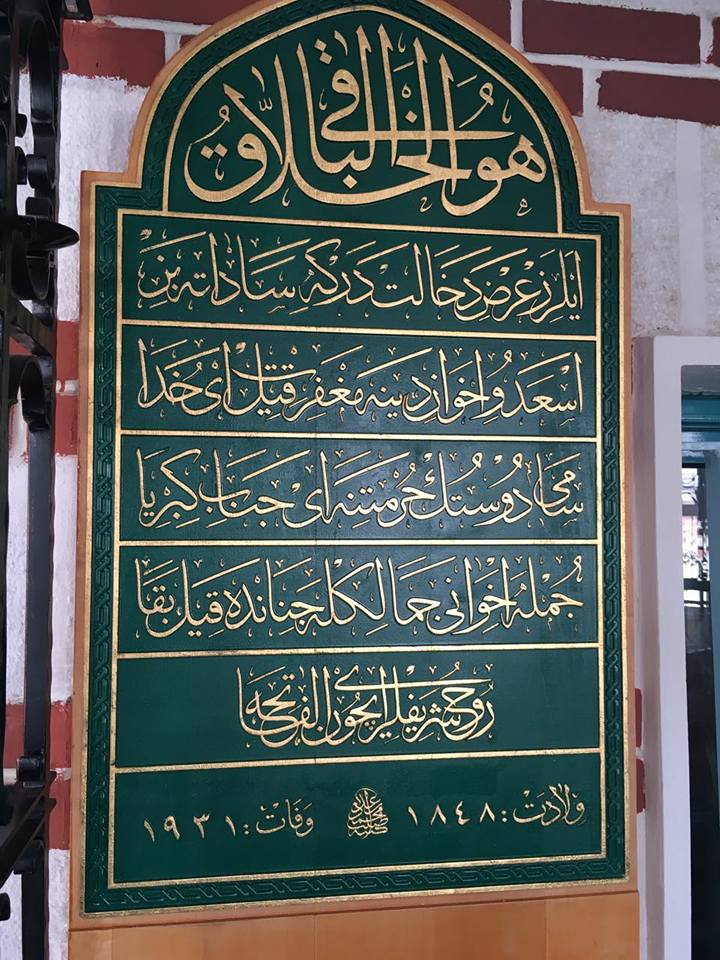 هو الخلاق الباقي
ايلرز عرض دخالت درگه ساداته بز
اسعد و اخواز دينه مغفرت قيل اى خدا
سامى دوستك حرمتنه اى جناب كبريا
جمله اخوانى جمالكله جنانده قيل بقا
روح شريفلرى ايچون الفاتحه
ولادت : ١٨٤٨ وفات : ١٩٣١